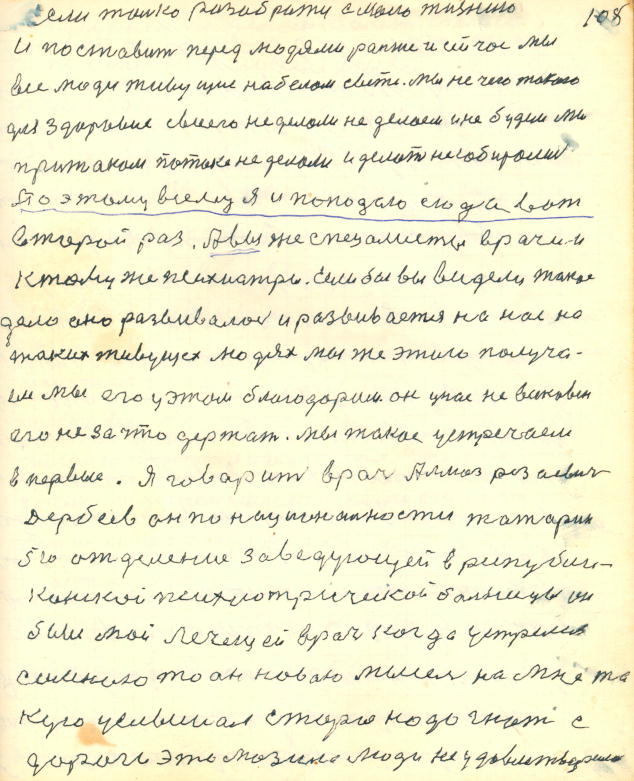 108
если только разабрать с мого жизнию
и поставит перед людями раньше и сейчас мы
все люди живущие на белом свети. мы не чего такого
для здоровие своего не делали не делаем и не будем мы
при таком потоке не делали и делат не собирались
По этому всему я и поподаю сюда вот
второй раз. А вы же специалисты врачи и
к тому же психиатры. Если бы вы видели такое
дело оно развивалос и развивается на нас на
таких живущех людях мы же этого получа-
им мы его у этом благодорим он у нас не виновен
его не за что держат. мы такое устречаем
в первые. Я говарит врач Алмаз
Дербеев он по национальности татарин
5го отделение заведующей в рипубли-
канской психиотрической больнице он
был мой лечещей врач когда устрелся
со мною то он новаю мысел на мне та
кую услышал старе надо гнат с
дороги это мозина люди не удовлетворили